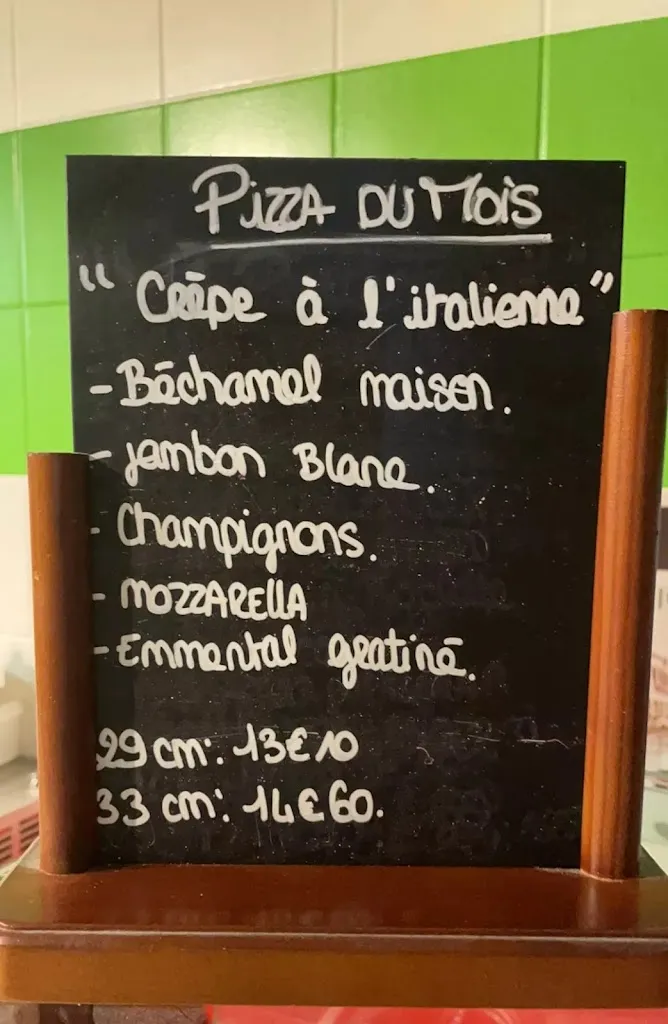 PiZZA DU MOiS
"Crêpe à l'italienne"
- Béchamel maison.
- jambon Blanc.
- Champignons.
- MOZZARELLA
- Emmental gratiné.
29 cm: 13€10
33 cm: 14€60.